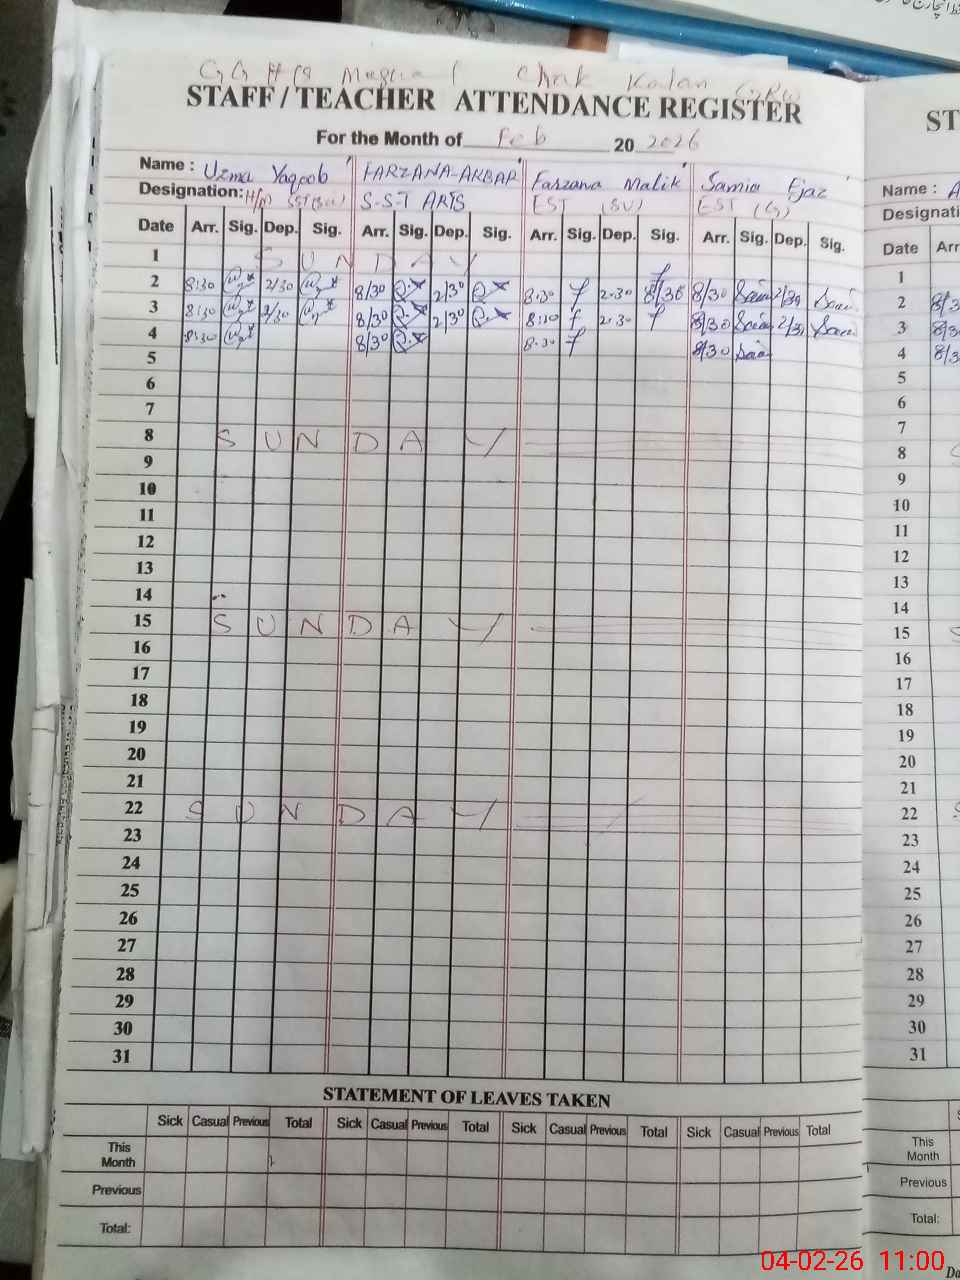 GGHS Mughal Chak Kalan GRW
STAFF / TEACHER ATTENDANCE REGISTER
For the Month of Feb 20 2026
Name : Uzma Yaqoob FARZANA-AKBAR Farzana Malik Samia Ejaz
Designation: H/M SST S-S-T ARTS EST (SV) EST (G)
Date Arr. Sig. Dep. Sig. Arr. Sig. Dep. Sig. Arr. Sig. Dep. Sig. Arr. Sig. Dep. Sig.
1 SUNDAY
2 8:30 2/30 8/30 2/30 8.30 2.30 8/30 8/30 2/30
3 8:30 2/30 8/30 2/30 8:30 2.30 8/30 2/30
4 8:30 8/30 8.30 8/30
5
6
7
8 SUNDAY
9
10
11
12
13
14
15 SUNDAY
16
17
18
19
20
21
22 SUNDAY
23
24
25
26
27
28
29
30
31
STATEMENT OF LEAVES TAKEN
Sick Casual Previous Total Sick Casual Previous Total Sick Casual Previous Total Sick Casual Previous Total
This
Month
Previous
Total:
ST
Name : A
Designati
Date Arr
1
2 8/3
3 8/3
4 8/3
5
6
7
8 S
9
10
11
12
13
14
15 S
16
17
18
19
20
21
22 S
23
24
25
26
27
28
29
30
31
This
Month
Previous
Total:
04-02-26 11:00